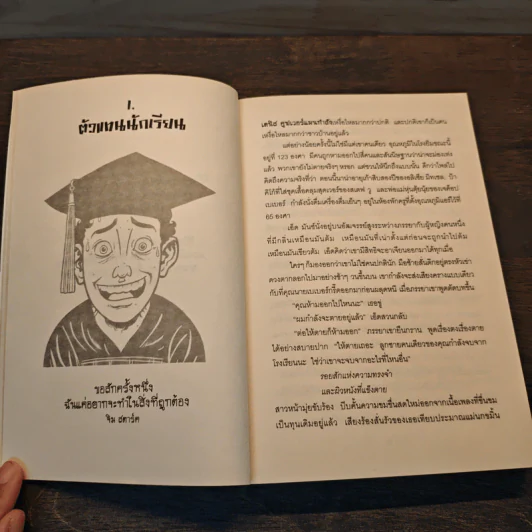 1.
ตัวแทนนักเรียน
ขอสักครั้งหนึ่ง
ฉันแค่อยากจะทำในสิ่งที่ถูกต้อง
จิม สตาร์ค
เดนิส คูเปอร์แมนกำลังเหงื่อไหลมากกว่าปกติ และปกติเขาก็เป็นคน
เหงื่อไหลมากกว่าชาวบ้านอยู่แล้ว
แต่อย่างน้อยครั้งนี้ไม่ใช่มีแค่เขาคนเดียว อุณหภูมิในโรงยิมขณะนี้
อยู่ที่ 123 องศา มีคนถูกหามออกไปสี่คนและสันนิษฐานว่าน่าจะม่องเท่ง
แล้ว พวกเขายังไม่ตายจริงๆ หรอก แต่ชวนให้นึกถึงแบบนั้น ดีกว่าไพล่ไป
คิดถึงความจริงที่ว่า ตอนนี้นานำอายุเก้าสิบสองปีของอลิเซีย มิทเชล, ป้า
ติโก้ที่ใส่ชุดเสื้อคลุมสุดเวอร์ของสเตฟ วู และพ่อแม่หุ่นตุ้ยนุ้ยของเจค็อป
เบเบอร์ กำลังนั่งดื่มเครื่องดื่มเย็นๆ อยู่ในห้องพักครูที่ตั้งอุณหภูมิแอร์ไว้ที่
65 องศา
เอ็ด มันช์นั่งอยู่บนอัฒจรรย์สูงระหว่างภรรยากับผู้หญิงคนหนึ่ง
ที่มีกลิ่นเหมือนมันต้ม เหมือนมันที่เน่าตั้งแต่ก่อนจะถูกนำไปต้ม
เหมือนมันเขียวต้ม เอ็ดคิดว่าเขามีสิทธิจะอาเจียนออกมาได้ทุกเมื่อ
ใครๆ ก็มองออกว่าเขาไม่ใช่คนปกตินัก มือซ้ายสั่นดิกอยู่ตรงหัวเข่า
ดวงตากลอกไปมาอย่างช้าๆ วนขึ้นบน เขากำลังจะส่งเสียงครางแบบเดียว
กับที่คุณนายเบเบอร์กรี๊ดออกมาก่อนผลุดหนี เมื่อภรรยาเขาพูดดัดบทขึ้น
“คุณห้ามออกไปไหนนะ” เธอขู่
“ผมกำลังจะตายอยู่แล้ว” เอ็ดสวนกลับ
“ต่อให้ตายก็ห้ามออก” ภรรยาเขายืนกราน พูดเรื่องตรงเรื่องตาย
ได้อย่างสบายปาก “ให้ตายเถอะ ลูกชายคนเดียวของคุณกำลังจบจาก
โรงเรียนนะ ใช่ว่าเขาจะจบจากอะไรที่ไหนอื่น”
รอยสักแห่งความทรงจำ
และผิวหนังที่แข็งตาย
สาวหน้ามุ่ยขับร้อง บีบคั้นความขมขื่นสดใหม่ออกจากเนื้อเพลงที่ขื่นขม
เป็นทุนเดิมอยู่แล้ว เสียงร้องสั่นรัวของเธอเทียบประมาณแม่นกขมิ้น